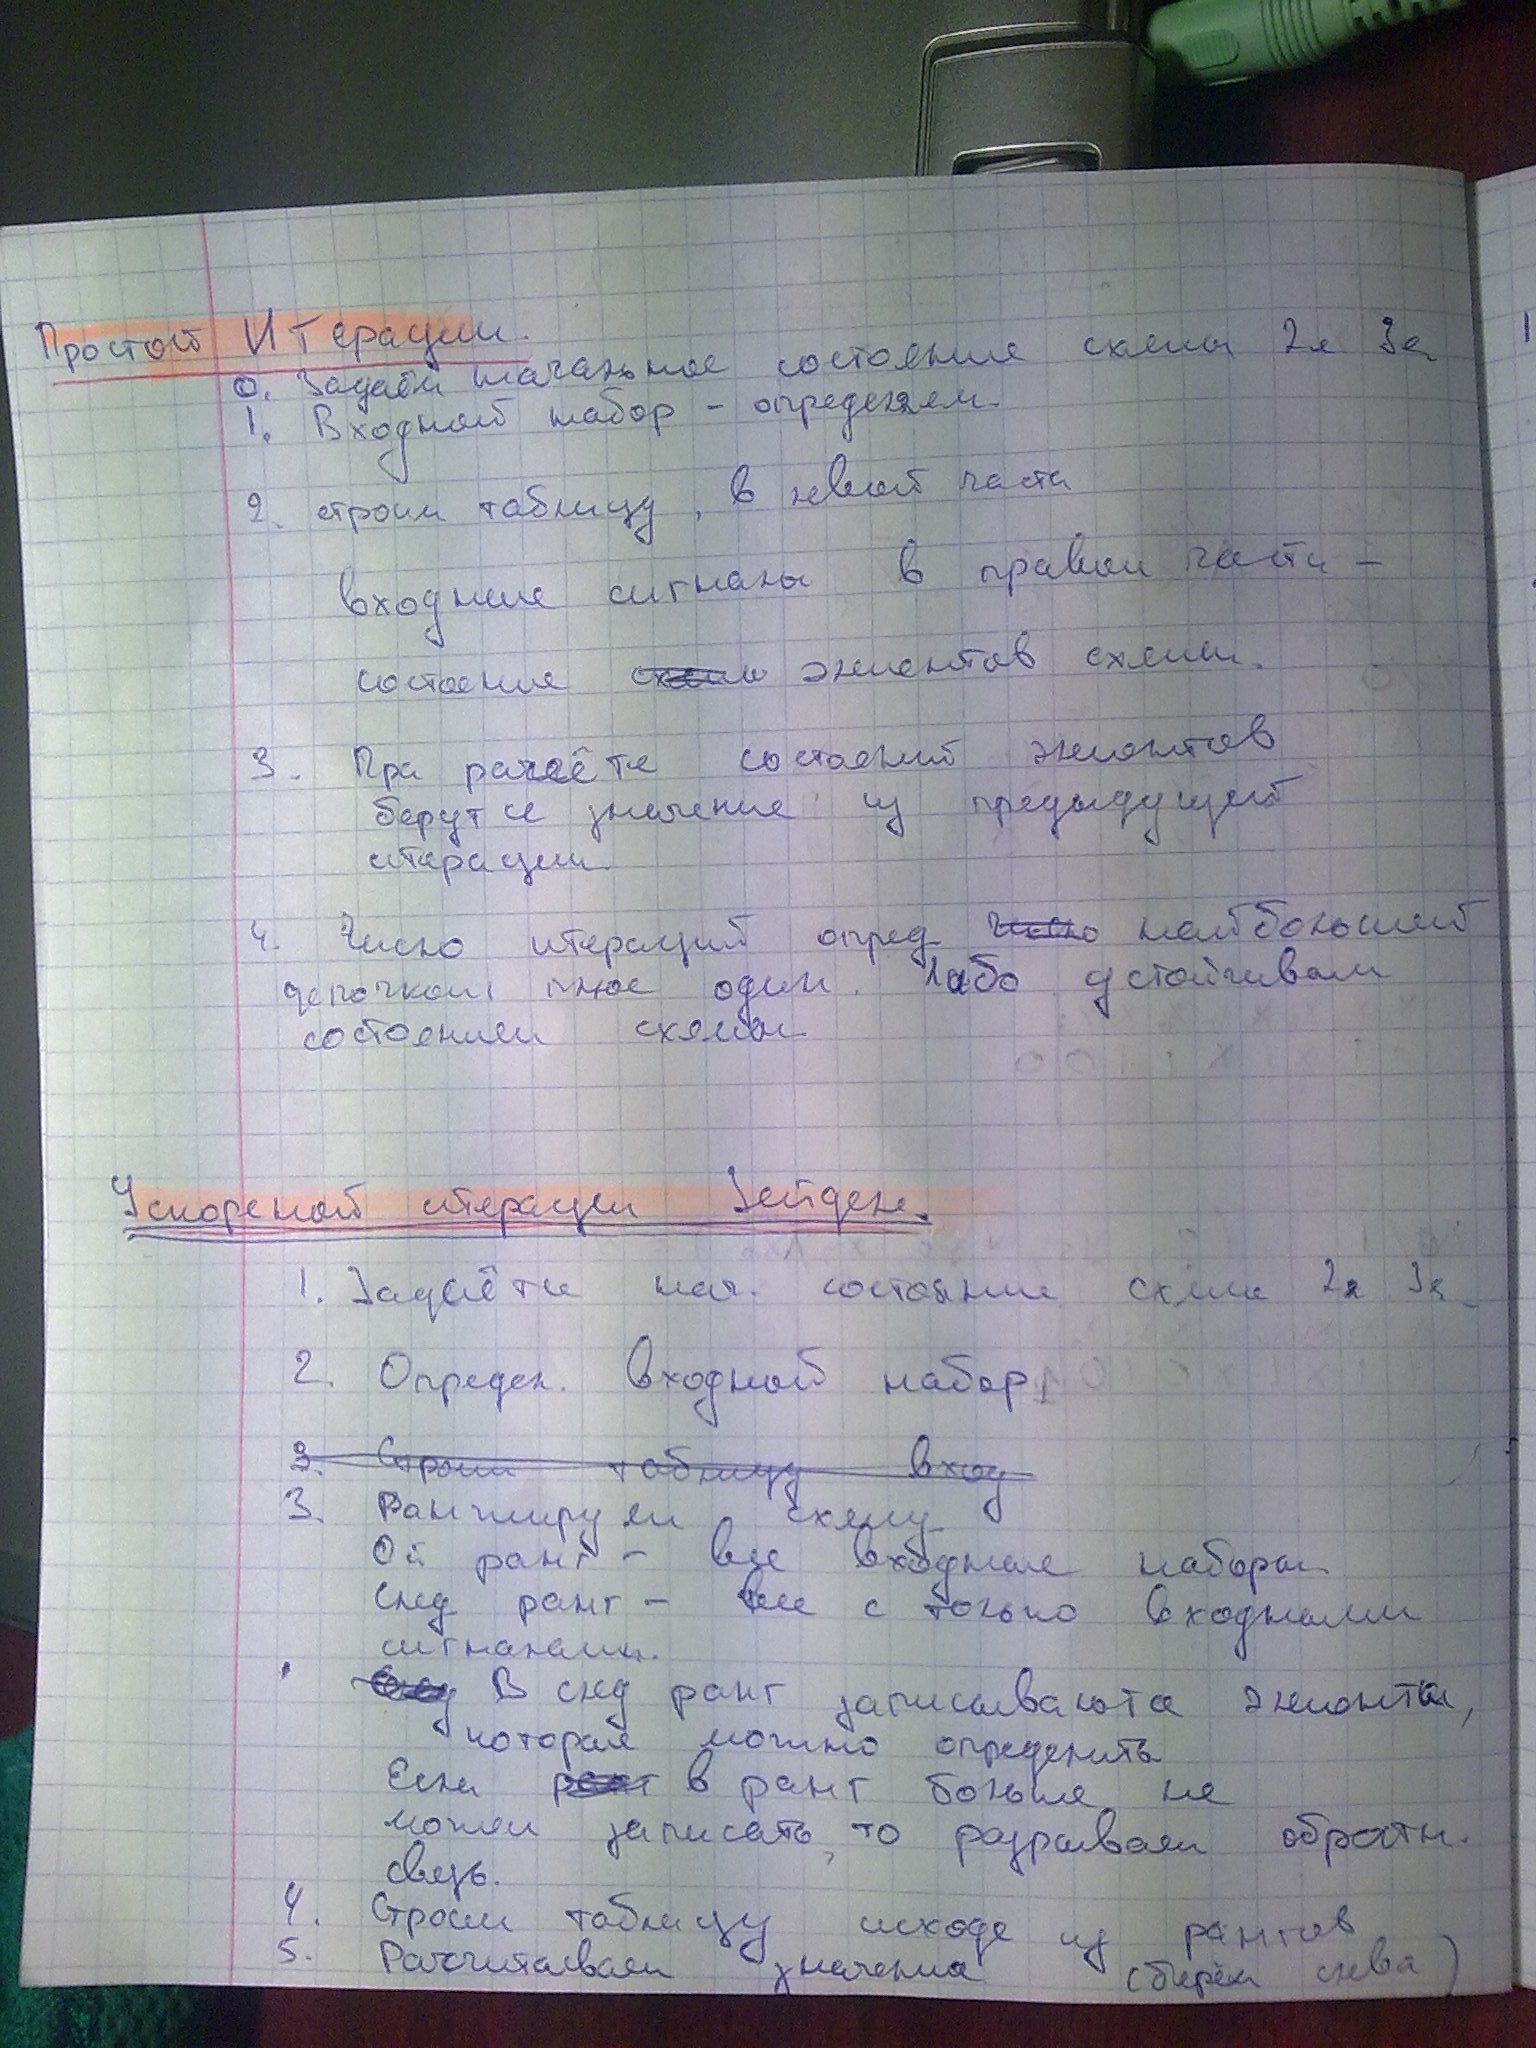 Простой Итерации.
0. Задаём начальное состояние схемы 2х 3а
1. Входной набор - определяем.
2. строим таблицу, в левой части
входные сигналы в правой части -
состояние элементов схемы.
3. При расчёте состояний элементов
берутся значение из предыдущей
итерации.
4. Число итераций опред число наибольшей
цепочкой плюс один. Либо устойчивым
состоянием схемы
Ускореной итерации Зейдел.
1. Задаётся нач. состояние схемы 2х 3а
2. Определ. входной набор
3. Строим таблицу вход
3. Ранжируем схему
0й ранг - все входные наборы
след ранг - все с только входными
сигналами.
след В след ранг записываются элементы,
которые можно определить
Если ранг в ранг больше не
можем записать, то разрываем обратн.
связь.
4. Строим таблицу исходя из рангов
5. Рассчитываем значения (берём слева)